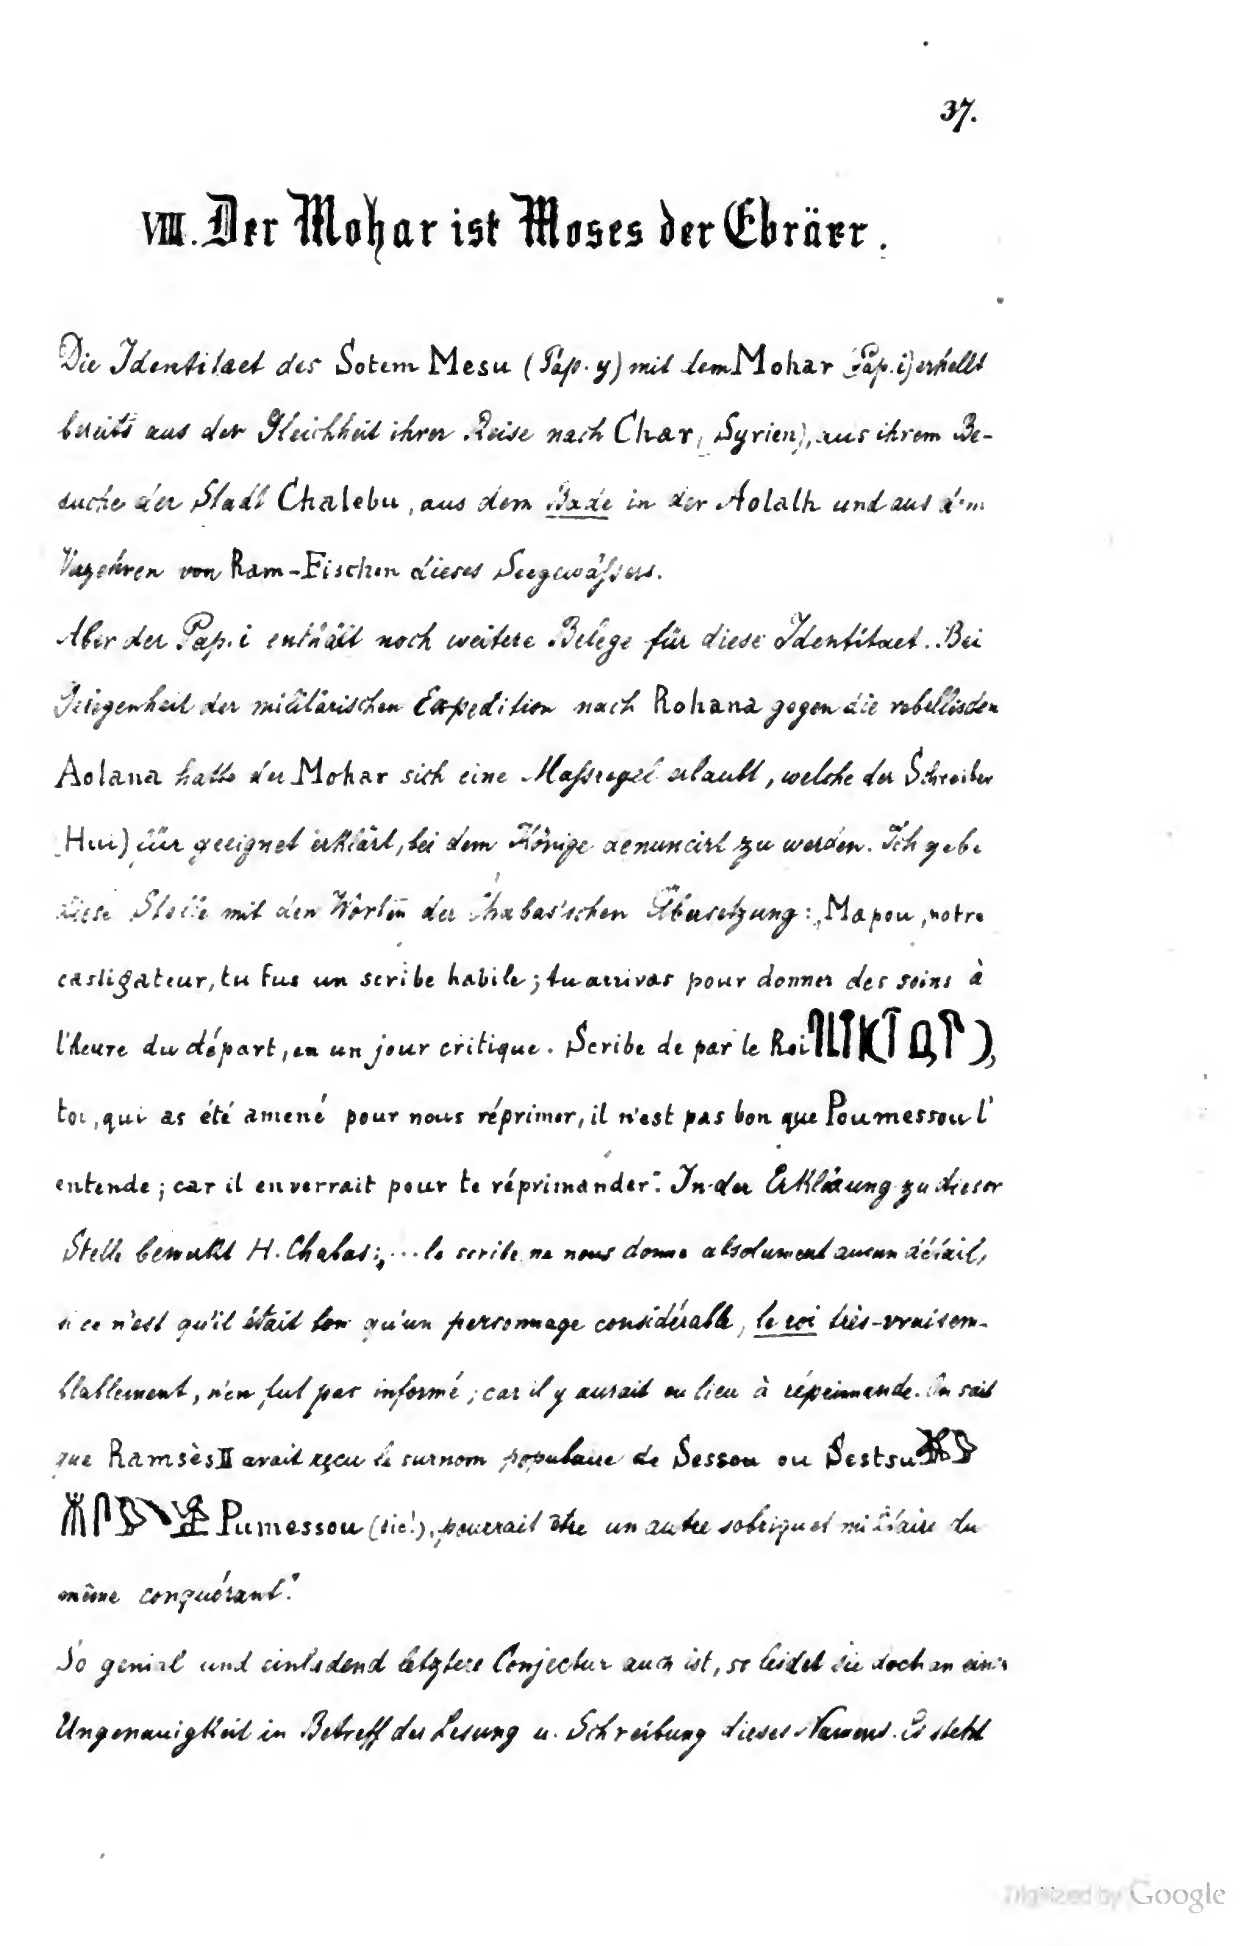 37.
VIII. Der Mohar ist Moses der Ebräer.
Die Identitaet des Sotem Mesu (Pap. y) mit dem Mohar (Pap. i) erhellt
bereits aus der Gleichheit ihrer Reise nach Char (Syrien), aus ihrem Be-
suche der Stadt Chalebu, aus dem Bade in der Aolath und aus dem
Verzehren von Ram-Fischen dieses Seegewäſsers.
Aber der Pap. i enthält noch weitere Belege für diese Identitaet. Bei
Gelegenheit der militärischen Expedition nach Rohana gegen die rebellischen
Aolana hatte der Mohar sich eine Maſsregel erlaubt, welche der Schreiber
(Hui) für geeignet erklärt, bei dem Könige denuncirt zu werden. Ich gebe
diese Stelle mit den Worten der Chabas'schen Übersetzung: „Mapou, notre
castigateur, tu fus un scribe habile; tu arrivas pour donner des soins à
l'heure du départ, en un jour critique. Scribe de par le Roi
toi, qui as été amené pour nous réprimer, il n'est pas bon que Poumessou l'
entende; car il enverrait pour te réprimander". In der Erklärung zu dieser
Stelle bemerkt H. Chabas: „... le scribe ne nous donne absolument aucun détail,
si ce n'est qu'il était bon qu'un personnage considérable, le roi très-vraisem-
blablement, n'en fut pas informé; car il y aurait eu lieu à réprimande. On sait
que Ramsès II avait reçu le surnom populaire de Sessou ou Sestsu
Pumessou (sic!), pourrait être un autre sobriquet militaire du
même conquérant."
So genial und einladend letztere Conjectur auch ist, so leidet sie doch an einer
Ungenauigkeit in Betreff der Lesung u. Schreibung dieses Namens. Es steht
Digitized by Google